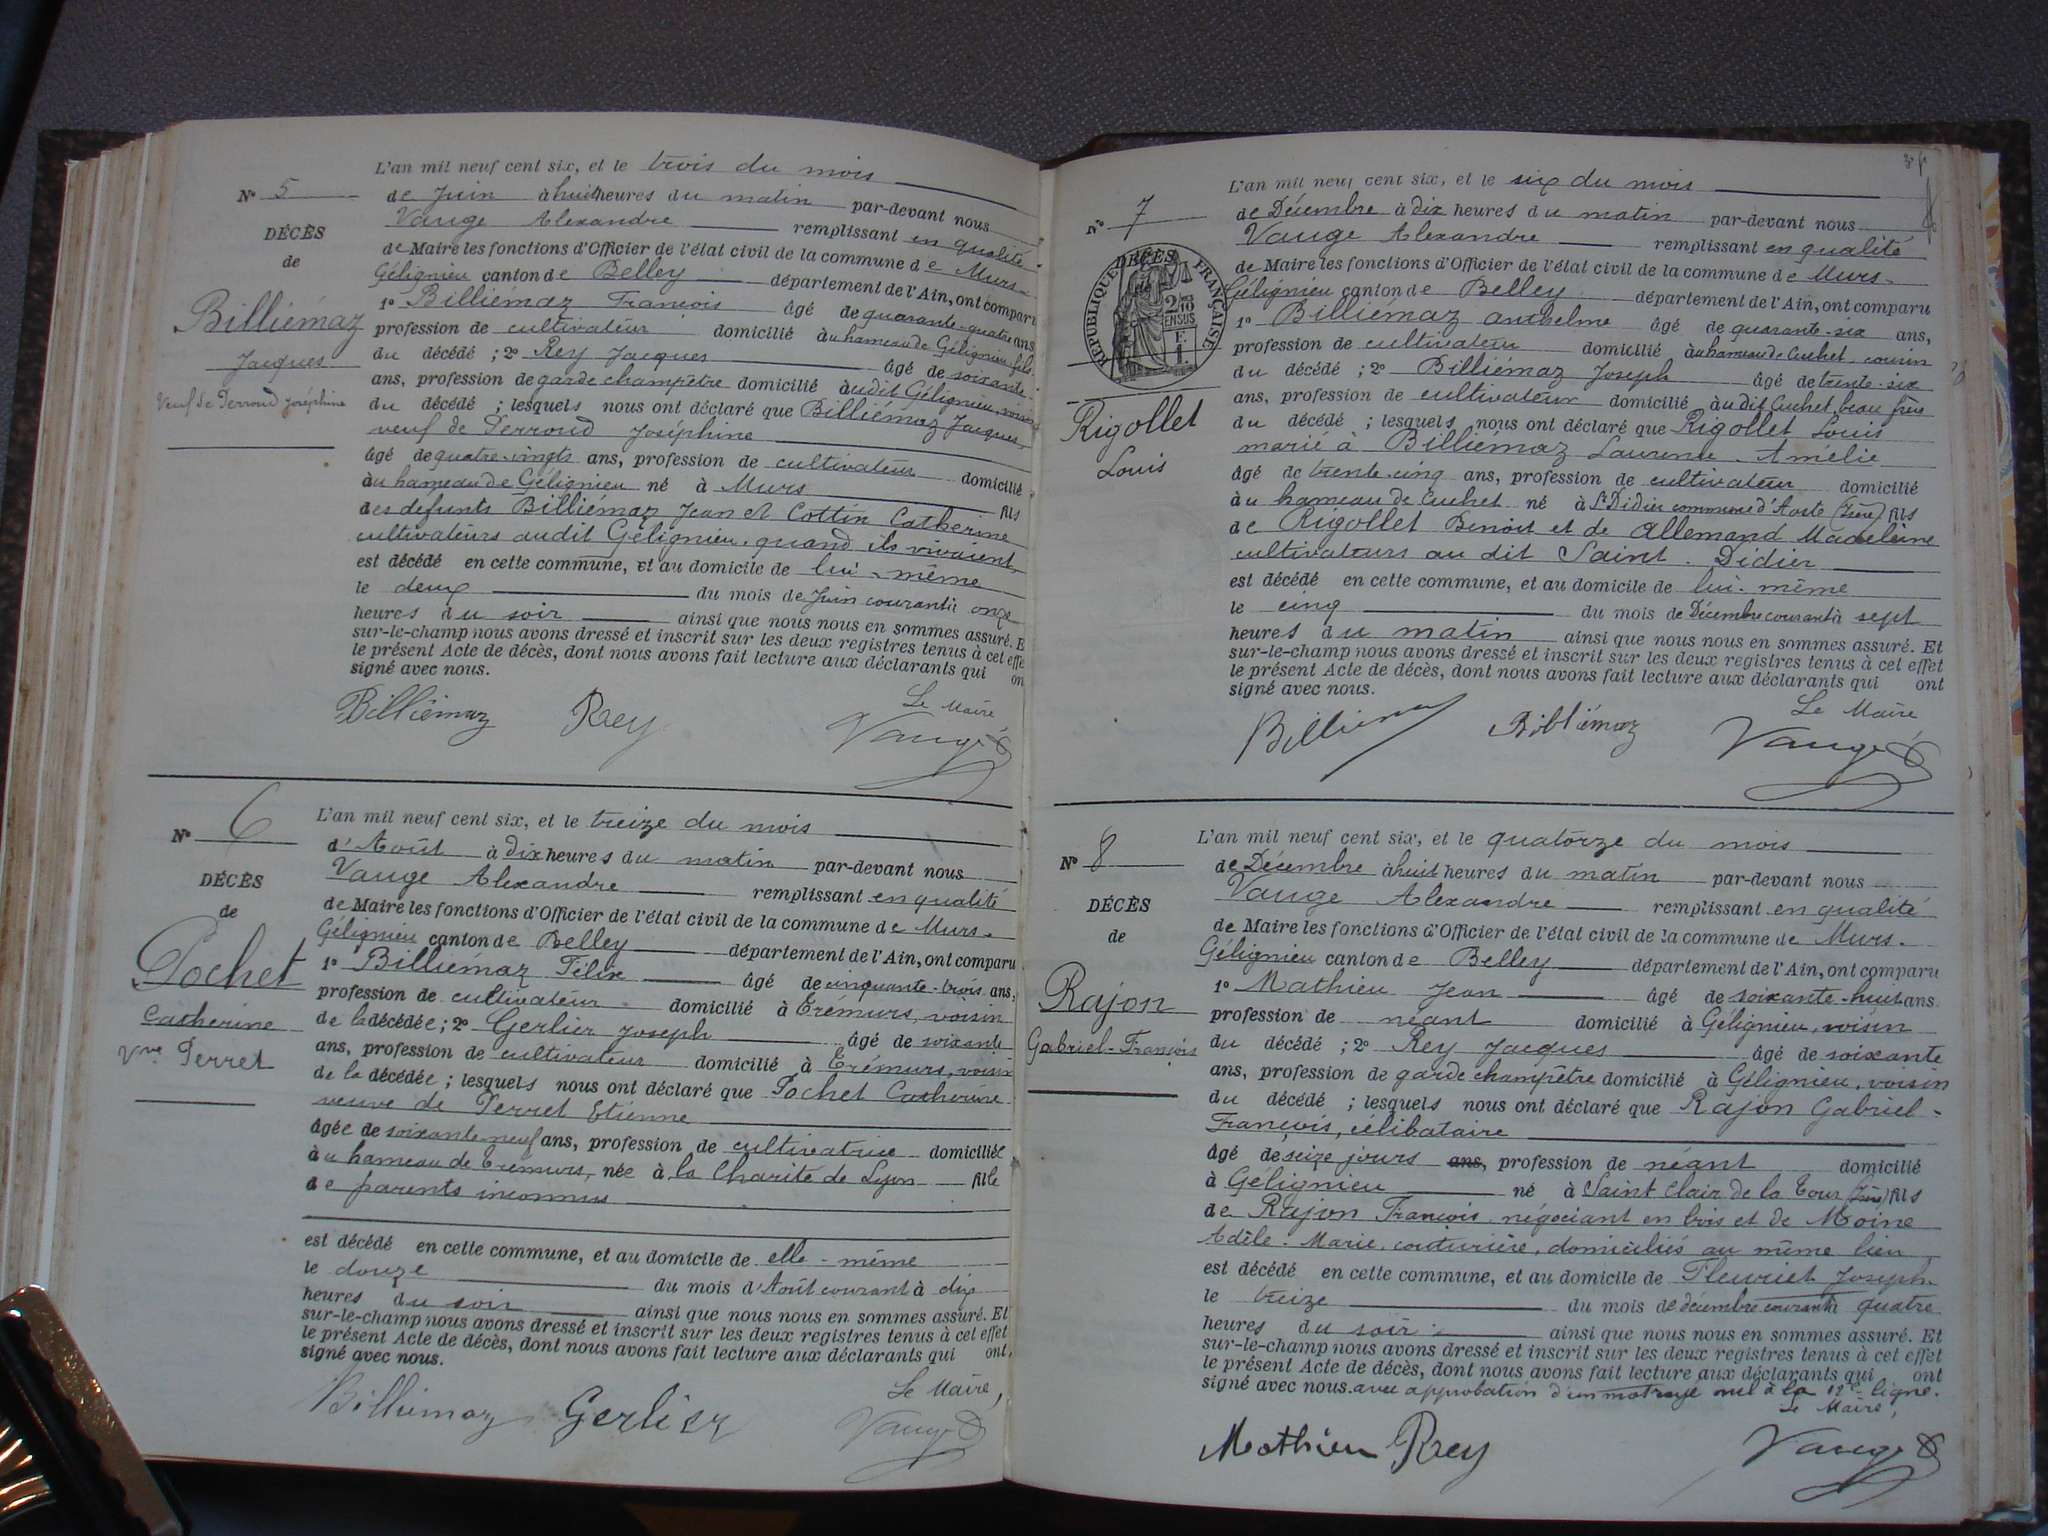 L'an mil neuf cent six, et le trois du mois
N° 5
de Juin à huit heures du matin par-devant nous
DÉCÈS
de
Billiémaz
Jacques
Veuf de Perroud Joséphine
Vauge Alexandre remplissant en qualité
de Maire les fonctions d'Officier de l'état civil de la commune de Murs-
Gélignieu canton de Belley département de l'Ain, ont comparu
1° Billiémaz François âgé de quarante-quatre ans
profession de cultivateur domicilié au hameau de Gélignieu, fils
du décédé ; 2° Rey Jacques âgé de soixante
ans, profession de garde champêtre domicilié audit Gélignieu, voisin
du décédé ; lesquels nous ont déclaré que Billiémaz Jacques
veuf de Perroud Joséphine
âgé de quatre-vingts ans, profession de cultivateur domicilié
au hameau de Gélignieu né à Murs fils
des defunts Billiémaz Jean et Cottin Catherine
cultivateurs audit Gélignieu, quand ils vivaient
est décédé en cette commune, et au domicile de lui-même
le deux du mois de Juin courant à onze
heures du soir ainsi que nous nous en sommes assuré. E
sur-le-champ nous avons dressé et inscrit sur les deux registres tenus à cet effe
le présent Acte de décès, dont nous avons fait lecture aux déclarants qui on
signé avec nous.
Le Maire
Billiémaz Rey Vauge
L'an mil neuf cent six, et le treize du mois
N° 6
d'Août à dix heures du matin par-devant nous
DÉCÈS
de
Pochet
Catherine
Vve Perret
Vauge Alexandre remplissant en qualité
de Maire les fonctions d'Officier de l'état civil de la commune de Murs-
Gélignieu canton de Belley département de l'Ain, ont comparu
1° Billiémaz Félix âgé de cinquante-trois ans,
profession de cultivateur domicilié à Trémurs, voisin
de la décédée ; 2° Gerlier Joseph âgé de soixante
ans, profession de cultivateur domicilié à Trémurs, voisin
de la décédée ; lesquels nous ont déclaré que Pochet Catherine
veuve de Perret Etienne
âgée de soixante neuf ans, profession de cultivatrice domiciliée
au hameau de Trémurs, née à la Charité de Lyon fille
de parents inconnus
est décédé en cette commune, et au domicile de elle-même
le douze du mois d'Août courant à dix
heures du soir ainsi que nous nous en sommes assuré. Et
sur-le-champ nous avons dressé et inscrit sur les deux registres tenus à cet effet
le présent Acte de décès, dont nous avons fait lecture aux déclarants qui ont
signé avec nous.
Le Maire,
Billiémaz Gerlier Vauge
L'an mil neuf cent six, et le six du mois
N° 7
de Décembre à dix heures du matin par-devant nous
RÉPUBLIQUE FRANÇAISE
DÉCÈS
2/10 EN SUS
F. 1
Rigollet
Louis
Vauge Alexandre remplissant en qualité
de Maire les fonctions d'Officier de l'état civil de la commune de Murs-
Gélignieu canton de Belley département de l'Ain, ont comparu
1° Billiémaz anthelme âgé de quarante-six ans,
profession de cultivateur domicilié au hameau de Cuchet, cousin
du décédé ; 2° Billiémaz Joseph âgé de trente-six
ans, profession de cultivateur domicilié audit Cuchet, beau frère
du décédé ; lesquels nous ont déclaré que Rigollet Louis
marié à Billiémaz Laurence-Amélie
âgé de trente-cinq ans, profession de cultivateur domicilié
au hameau de Cuchet né à St Didier commune d'Aoste (Isère) fils
de Rigollet Benoit et de Allemand Madeleine
cultivateurs au dit Saint-Didier
est décédé en cette commune, et au domicile de lui-même
le cinq du mois de Décembre courant à sept
heures du matin ainsi que nous nous en sommes assuré. Et
sur-le-champ nous avons dressé et inscrit sur les deux registres tenus à cet effet
le présent Acte de décès, dont nous avons fait lecture aux déclarants qui ont
signé avec nous.
Le Maire
Billiémaz Billiémaz Vauge
L'an mil neuf cent six, et le quatorze du mois
N° 8
de Décembre à huit heures du matin par-devant nous
DÉCÈS
de
Rajon
Gabriel-François
Vauge Alexandre remplissant en qualité
de Maire les fonctions d'Officier de l'état civil de la commune de Murs-
Gélignieu canton de Belley département de l'Ain, ont comparu
1° Mathieu Jean âgé de soixante-huit ans
profession de néant domicilié à Gélignieu, voisin
du décédé ; 2° Rey Jacques âgé de soixante
ans, profession de garde champêtre domicilié à Gélignieu, voisin
du décédé ; lesquels nous ont déclaré que Rajon Gabriel-
François, célibataire
âgé de seize jours ans, profession de néant domicilié
à Gélignieu né à Saint Clair de la Tour (Isère) fils
de Rajon François, négociant en bois et de Moine
Adèle-Marie, couturière, domiciliés au même lieu
est décédé en cette commune, et au domicile de Fleuriet Joseph
le treize du mois de décembre courant à quatre
heures du soir ainsi que nous nous en sommes assuré. Et
sur-le-champ nous avons dressé et inscrit sur les deux registres tenus à cet effet
le présent Acte de décès, dont nous avons fait lecture aux déclarants qui ont
signé avec nous. avec approbation d'un mot rayé nul à la 12e ligne.
Le Maire,
Mathieu Rey Vauge